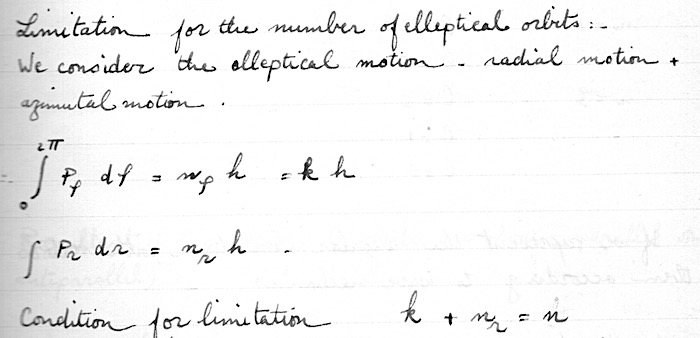 Limitation for the number of elleptical orbits :-
We consider the elleptical motion - radial motion +
azimutal motion .
∫₀^{2π} P_φ dφ = n_φ h = k h
∫ P_r dr = n_r h .
Condition for limitation k + n_r = n